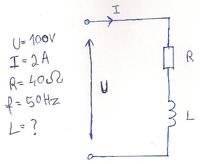 I
U=100V
I=2A
R=40Ω
f=50Hz
L=?
U
R
L